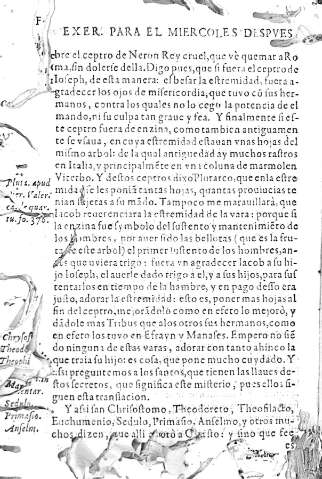 F.
EXER. PARA EL MIERCOLES DESPVES
bre el ceptro de Neron Rey cruel, que vè quemar a Ro
ma, sin dolerse della. Digo pues, que si fuera el ceptro de
Ioseph, de esta manera: el besar la estremidad, fuera a-
gradecer los ojos de misericordia, que tuvo cõ sus her-
manos, contra los quales no lo cego la potencia de el
mando, ni su culpa tan grave y fea. Y finalmente si es-
te ceptro fuera de enzina, como tambien antiguamen
te se vsaua, en cuya estremidad estauan vnas hojas del
mismo arbol: de la qual antiguedad ay muchos rastros
en Italia, y principalmẽte en vna coluna de marmol en
Viterbo. Y destos ceptros dixo Plutarco, que en la estre
midad se les poniã tantas hojas, quantas prouincias te
nian sujetas a su mãdo. Tampoco me marauillarà, que
Iacob reuerenciara la estremidad de la vara: porque si
la enzina fue symbolo del sustento y mantenimiẽto de
los hombres, por auer sido las bellotas (que es la fru-
ta de este arbol) el primer sustento de los hombres, an-
tes que uviera trigo: fuera agradecer Iacob a su hi-
jo Ioseph, el auerle dado trigo a el, y a sus hijos, para sus
tentarlos en tiempo de la hambre, y en pago desso era
justo, adorar la estremidad: esto es, poner mas hojas al
fin del ceptro, mejorãdolo como en efeto lo mejorò, y
dãdole mas Tribus que a los otros sus hermanos, como
en efeto los tuvo en Efrayn y Manases. Empero no siẽ
do ninguna de estas varas, adorar con tanto ahinco la
que traia su hijo: es cosa, que pone mucho cuydado. Y
assi preguntemos a los santos, que tienen las llaues des-
tos secretos, que significa este misterio, pues ellos si-
guen esta translacion.
Y assi san Chrisostomo, Theodoreto, Theofilacto,
Euchumenio, Sedulo, Primasio, Anselmo, y otros mu-
chos dizen, que alli adorò a Christo: y sino que fee
es
Pluta. apud
Pier. Valer.
quar-
tu. fo. 376.
Chrysost.
Theodo
Theophi
Sedulo.
Primasio.
Anselm.